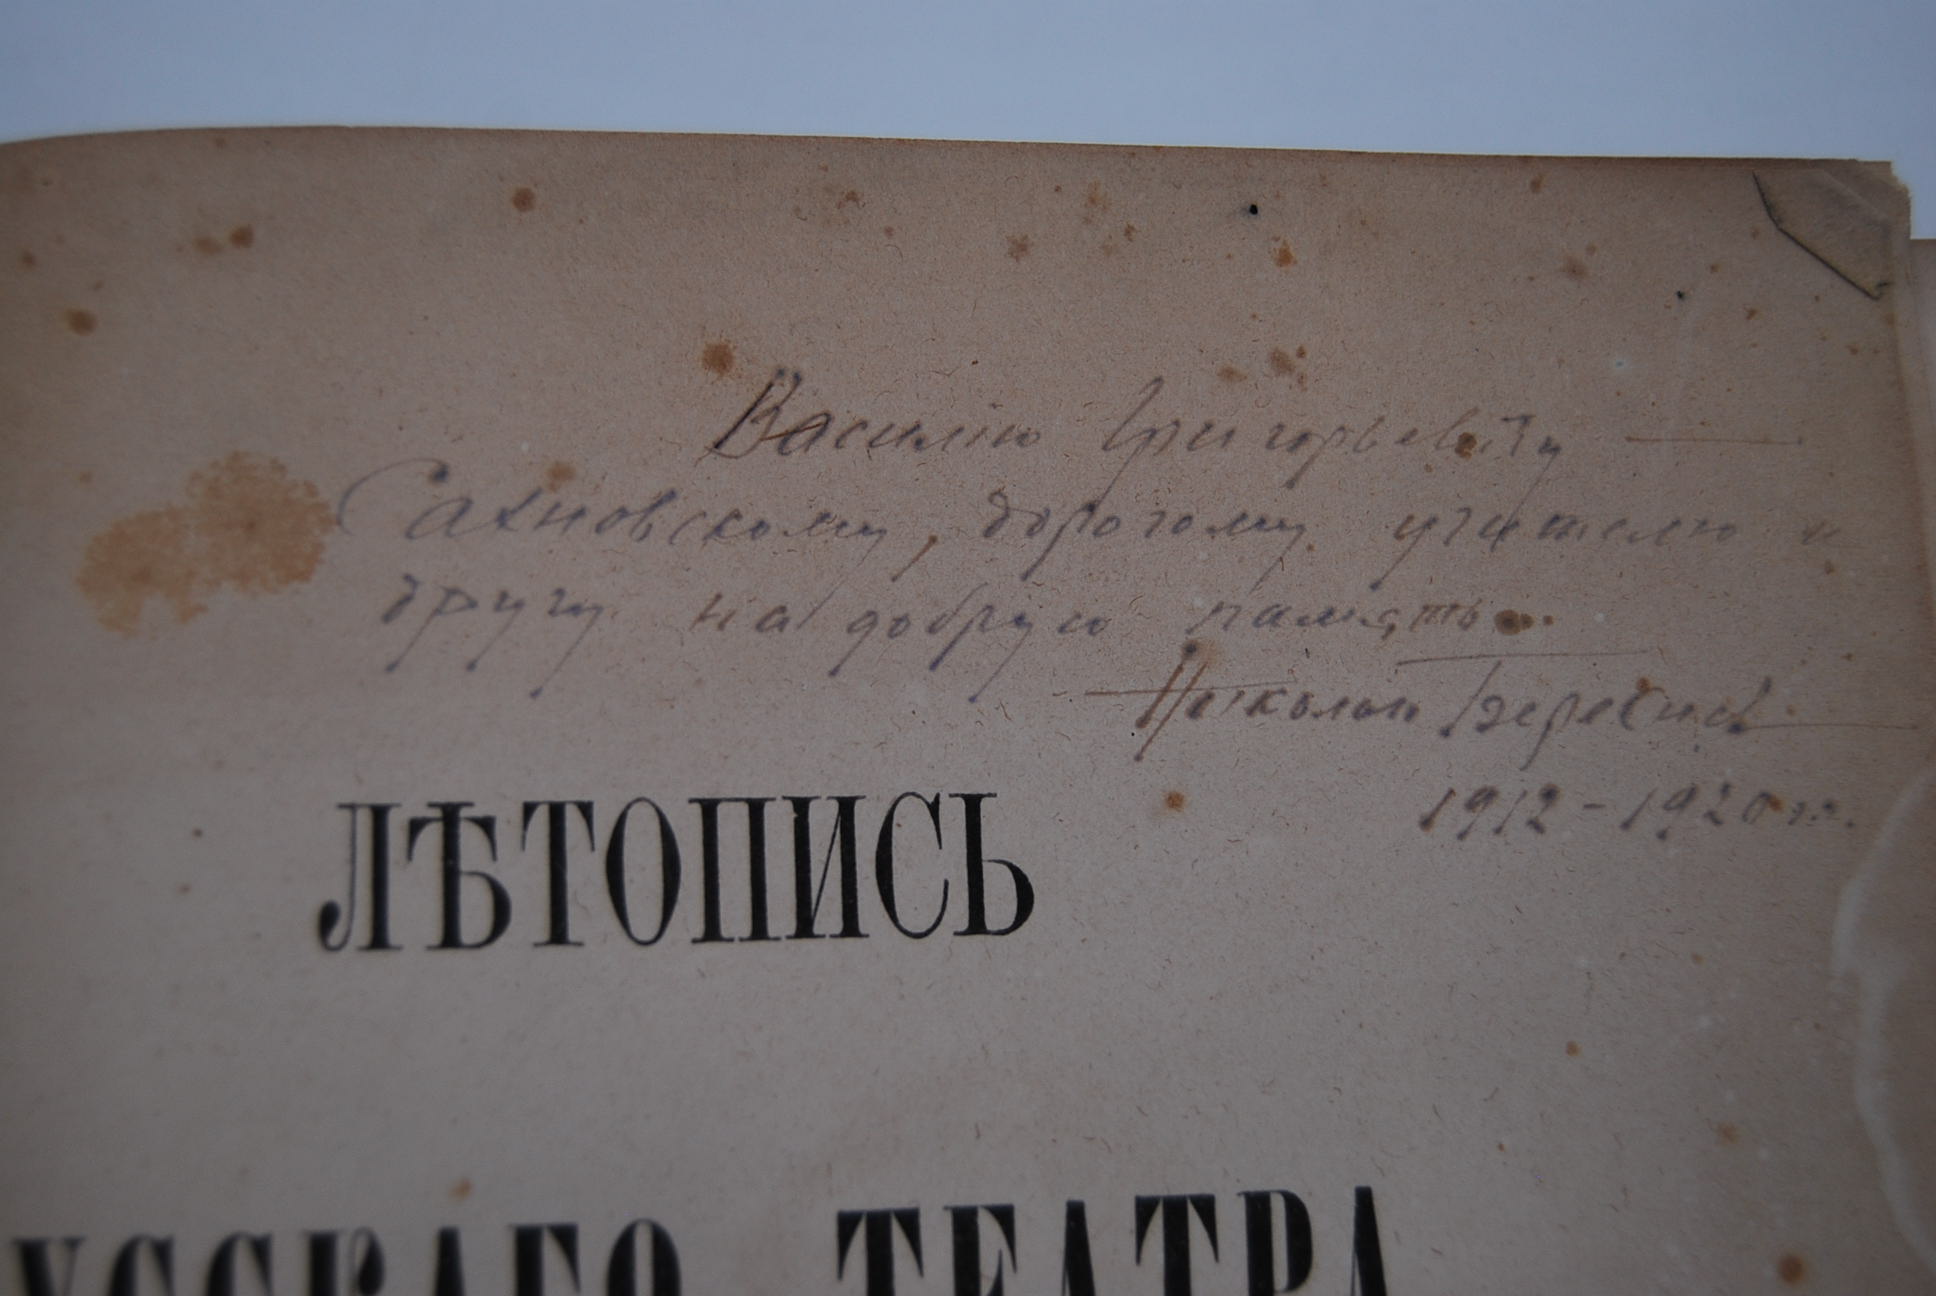 Василію Григорьевичу
Сахновскому, дорогому учителю и
другу на добрую память.
Николай
1912-1920 гг.
ЛѢТОПИСЬ
УССКАГО ТЕАТРА